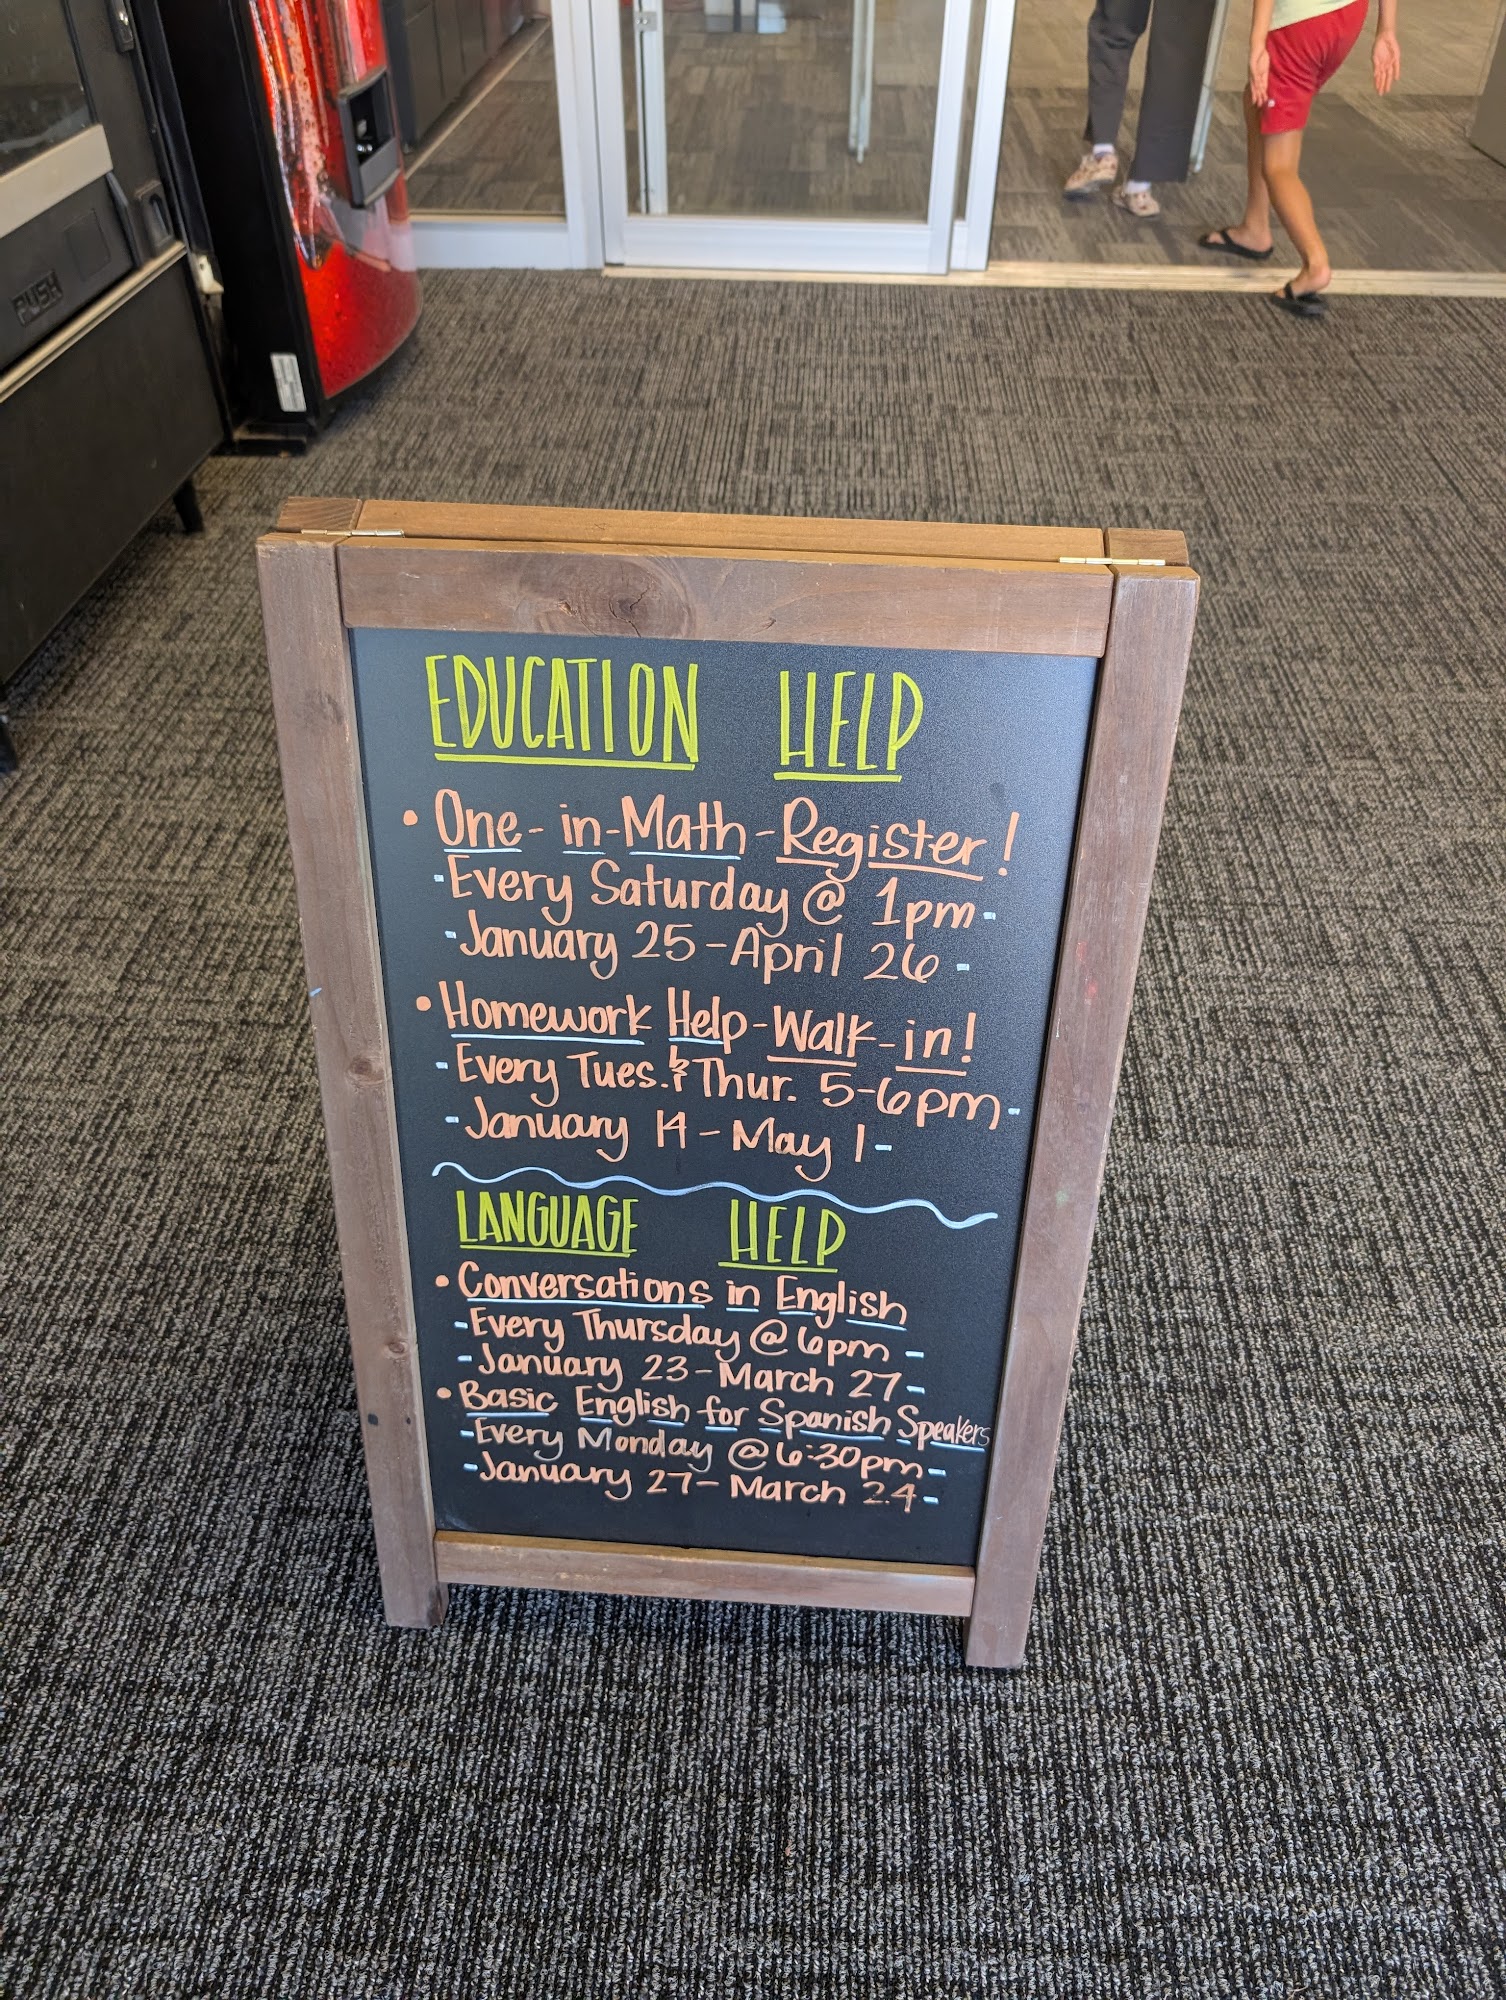 PUSH
EDUCATION HELP
• One-in-Math-Register!
-Every Saturday @ 1pm-
-January 25-April 26-
• Homework Help-Walk-in!
-Every Tues. & Thur. 5-6pm-
-January 14-May 1-
LANGUAGE HELP
• Conversations in English
-Every Thursday @ 6pm-
-January 23-March 27-
• Basic English for Spanish Speakers
-Every Monday @ 6:30pm-
-January 27-March 24-